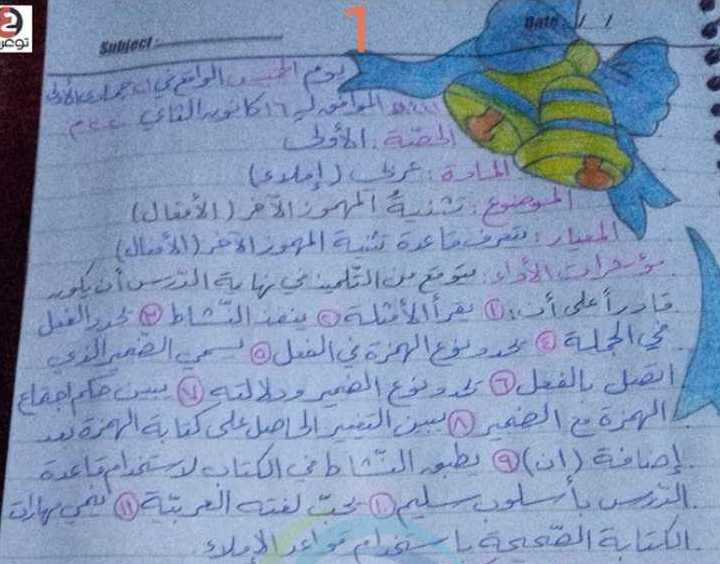 1
Subject: Date: / /
يوم الخميس الواقع في ٢١ جمادى الأولى
الموافق لـ ١٦ كانون الثاني
الحصّة: الأولى
المادة: عربي (إملاء)
الموضوع: تثنية المهموز الآخر (الأفعال)
المعيار: يتعرف قاعدة تثنية المهموز الآخر (الأفعال)
مؤشرات الأداء: يتوقع من التّلميذ في نهاية الدّرس أن يكون
قادراً على أن: ① يقرأ الأمثلة ② ينفذ النّشاط ③ يحدد الفعل
في الجملة ④ يحدد نوع الهمزة في الفعل ⑤ يسمي الضمير الذي
اتصل بالفعل ⑥ يحدد نوع الضمير ودلالته ⑦ يبين حكم اجتماع
الهمزة مع الضمير ⑧ يبين التغيير الحاصل على كتابة الهمزة بعد
إضافة (ان) ⑨ يطبق النّشاط في الكتاب لاستخدام قاعدة
الدّرس بأسلوب سليم ⑩ يحبّ لغته العربيّة ⑪ ينمي مهارات
الكتابة الصّحيحة باستخدام قواعد الإملاء.